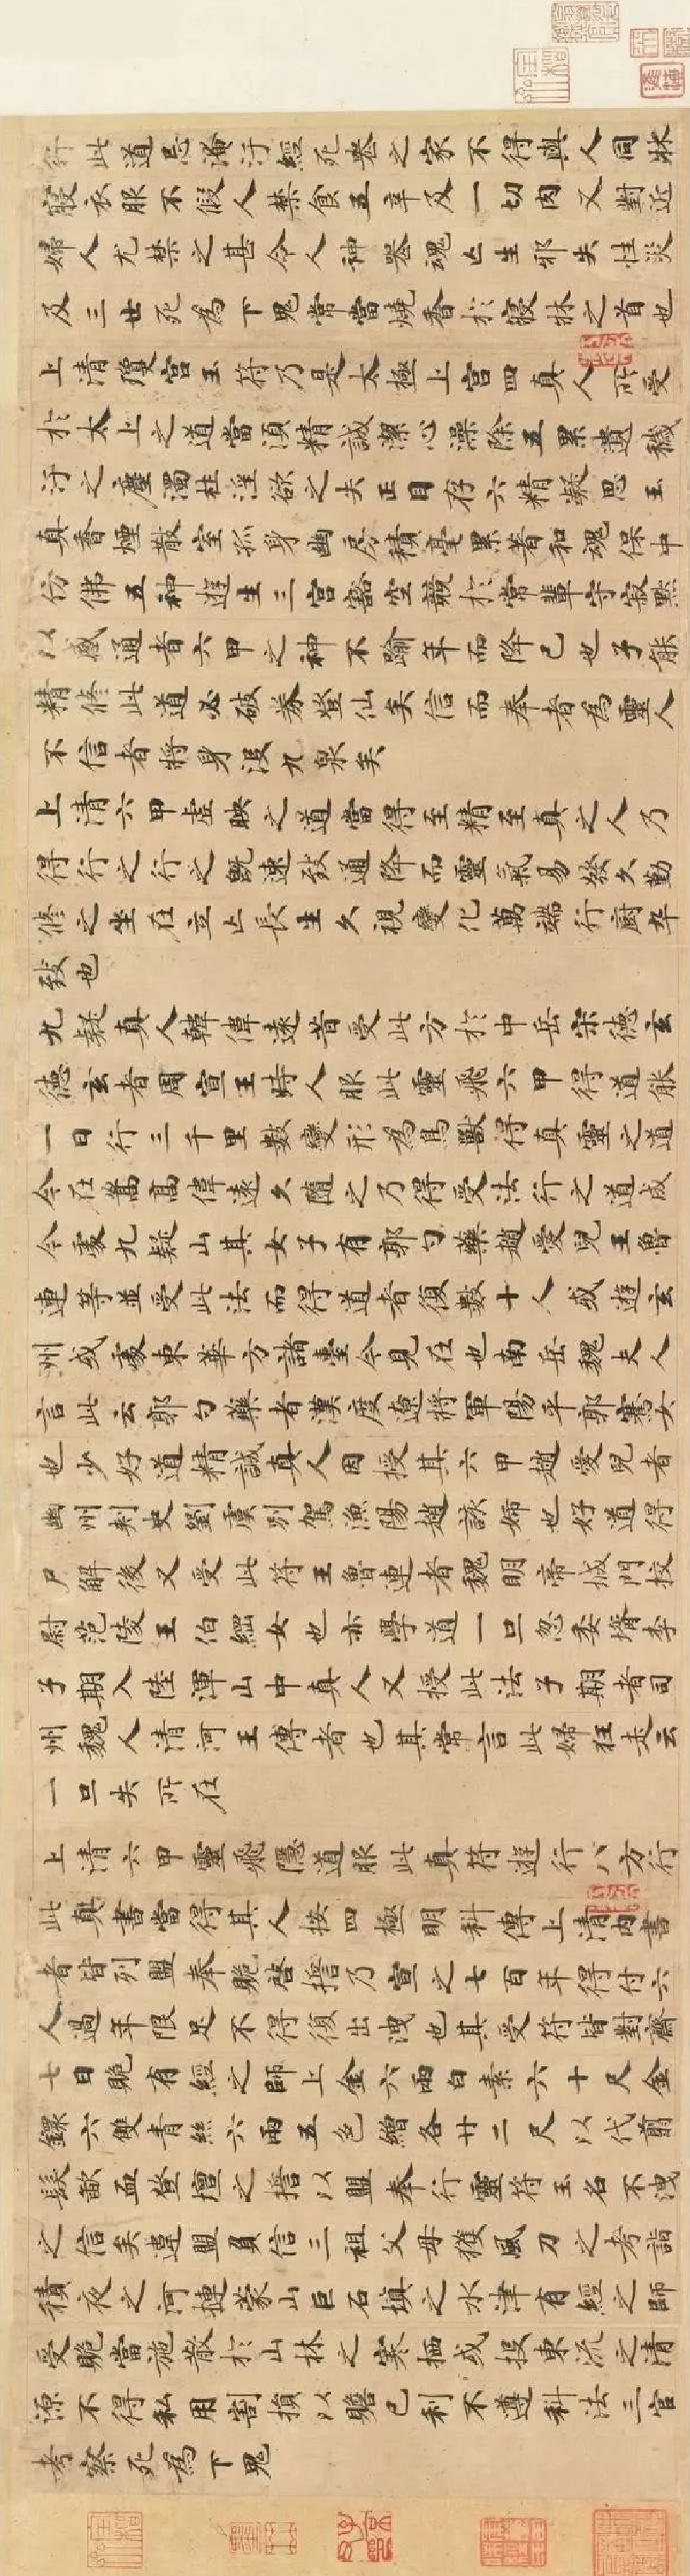 行此道忌淹汙經死喪之家不得與人同牀
寢衣服不假人禁食五辛及一切肉又對近
婦人尤禁之甚令人神喪魂亡生邪失性災
及三世死為下鬼常當燒香於寢牀之首也
上清瓊宮玉符乃是太極上宮四真人所受
於太上之道當須精誠潔心澡除五累遺穢
汙之塵濁杜淫欲之失正目存六精凝思玉
真香煙散室孤身幽房積毫累著和魂保中
仿佛五神遊生三宮豁空競於常輩守寂默
以感通者六甲之神不踰年而降己也子能
精修此道必破券登仙矣信而奉者為靈人
不信者將身沒九泉矣
上清六甲虛映之道當得至精至真之人乃
得行之行之既速致通降而靈氣易發久勤
修之坐在立亡長生久視變化萬端行廚卒
致也
九疑真人韓偉遠昔受此方於中岳宋德玄
德玄者周宣王時人服此靈飛六甲得道能
一日行三千里數變形為鳥獸得真靈之道
今在嵩高偉遠久隨之乃得受法行之道成
今處九疑山其女子有郭勺藥趙愛兒王魯
連等並受此法而得道者復數十人或遊玄
州或處東華方諸臺今見在也南岳魏夫人
言此云郭勺藥者漢度遼將軍陽平郭騫女
也少好道精誠真人因授其六甲趙愛兒者
幽州刺史劉虞別駕漁陽趙該姊也好道得
尸解後又受此符王魯連者魏明帝城門校
尉范陵王伯綱女也亦學道一旦忽委壻李
子期入陸渾山中真人又授此法子期者司
州魏人清河王傅者也其常言此婦狂走云
一旦失所在
上清六甲靈飛隱道服此真符遊行八方行
此真書當得其人按四極明科傳上清內書
者皆列盟奉貺啓擔乃宣之七百年得付六
人過年限足不得復出洩也其受符皆對齋
七日貺有經之師上金六兩白素六十尺金
鐶六雙青絲六兩五色繒各廿二尺以代翦
髮歃血登壇之擔以盟奉行靈符玉名不洩
之信矣違盟負信三祖父母獲風刀之考詣
積夜之河摙蒙山巨石填之水津有經之師
受貺當施散於山林之寒栖或投東流之清
源不得私用割損以贍己利不遵科法三官
考察死為下鬼